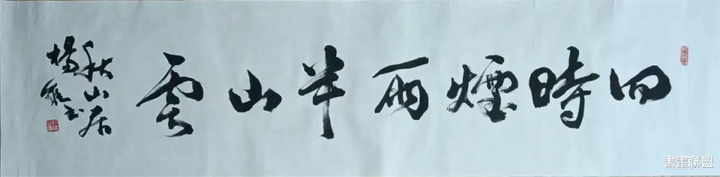 四時煙雨半山雲
秋山居
楊書
書畫聯盟